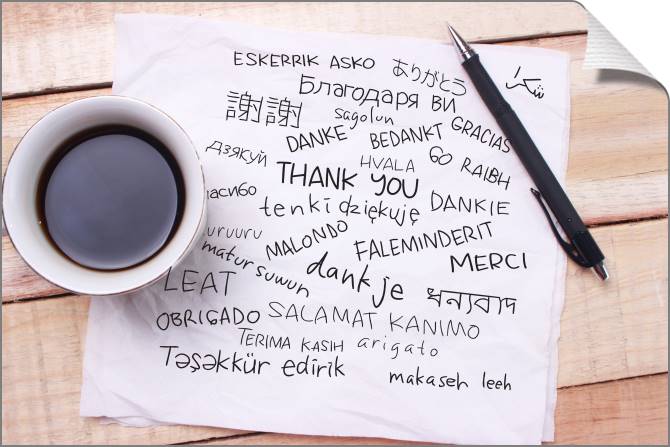 ESKERRIK ASKO
ありがとう
شكرا
Благодаря ви
謝謝
sagolun
DANKE
BEDANKT
GRACIAS
дзякуй
HVALA
GO RAIBH
THANK YOU
tenki
dziękuję
DANKIE
MALONDO
FALEMINDERIT
matur suwun
MERCI
dank je
LEAT
ধন্যবাদ
OBRIGADO
SALAMAT KANIMO
TERIMA KASIH
arigato
Təşəkkür edirik
makaseh leeh